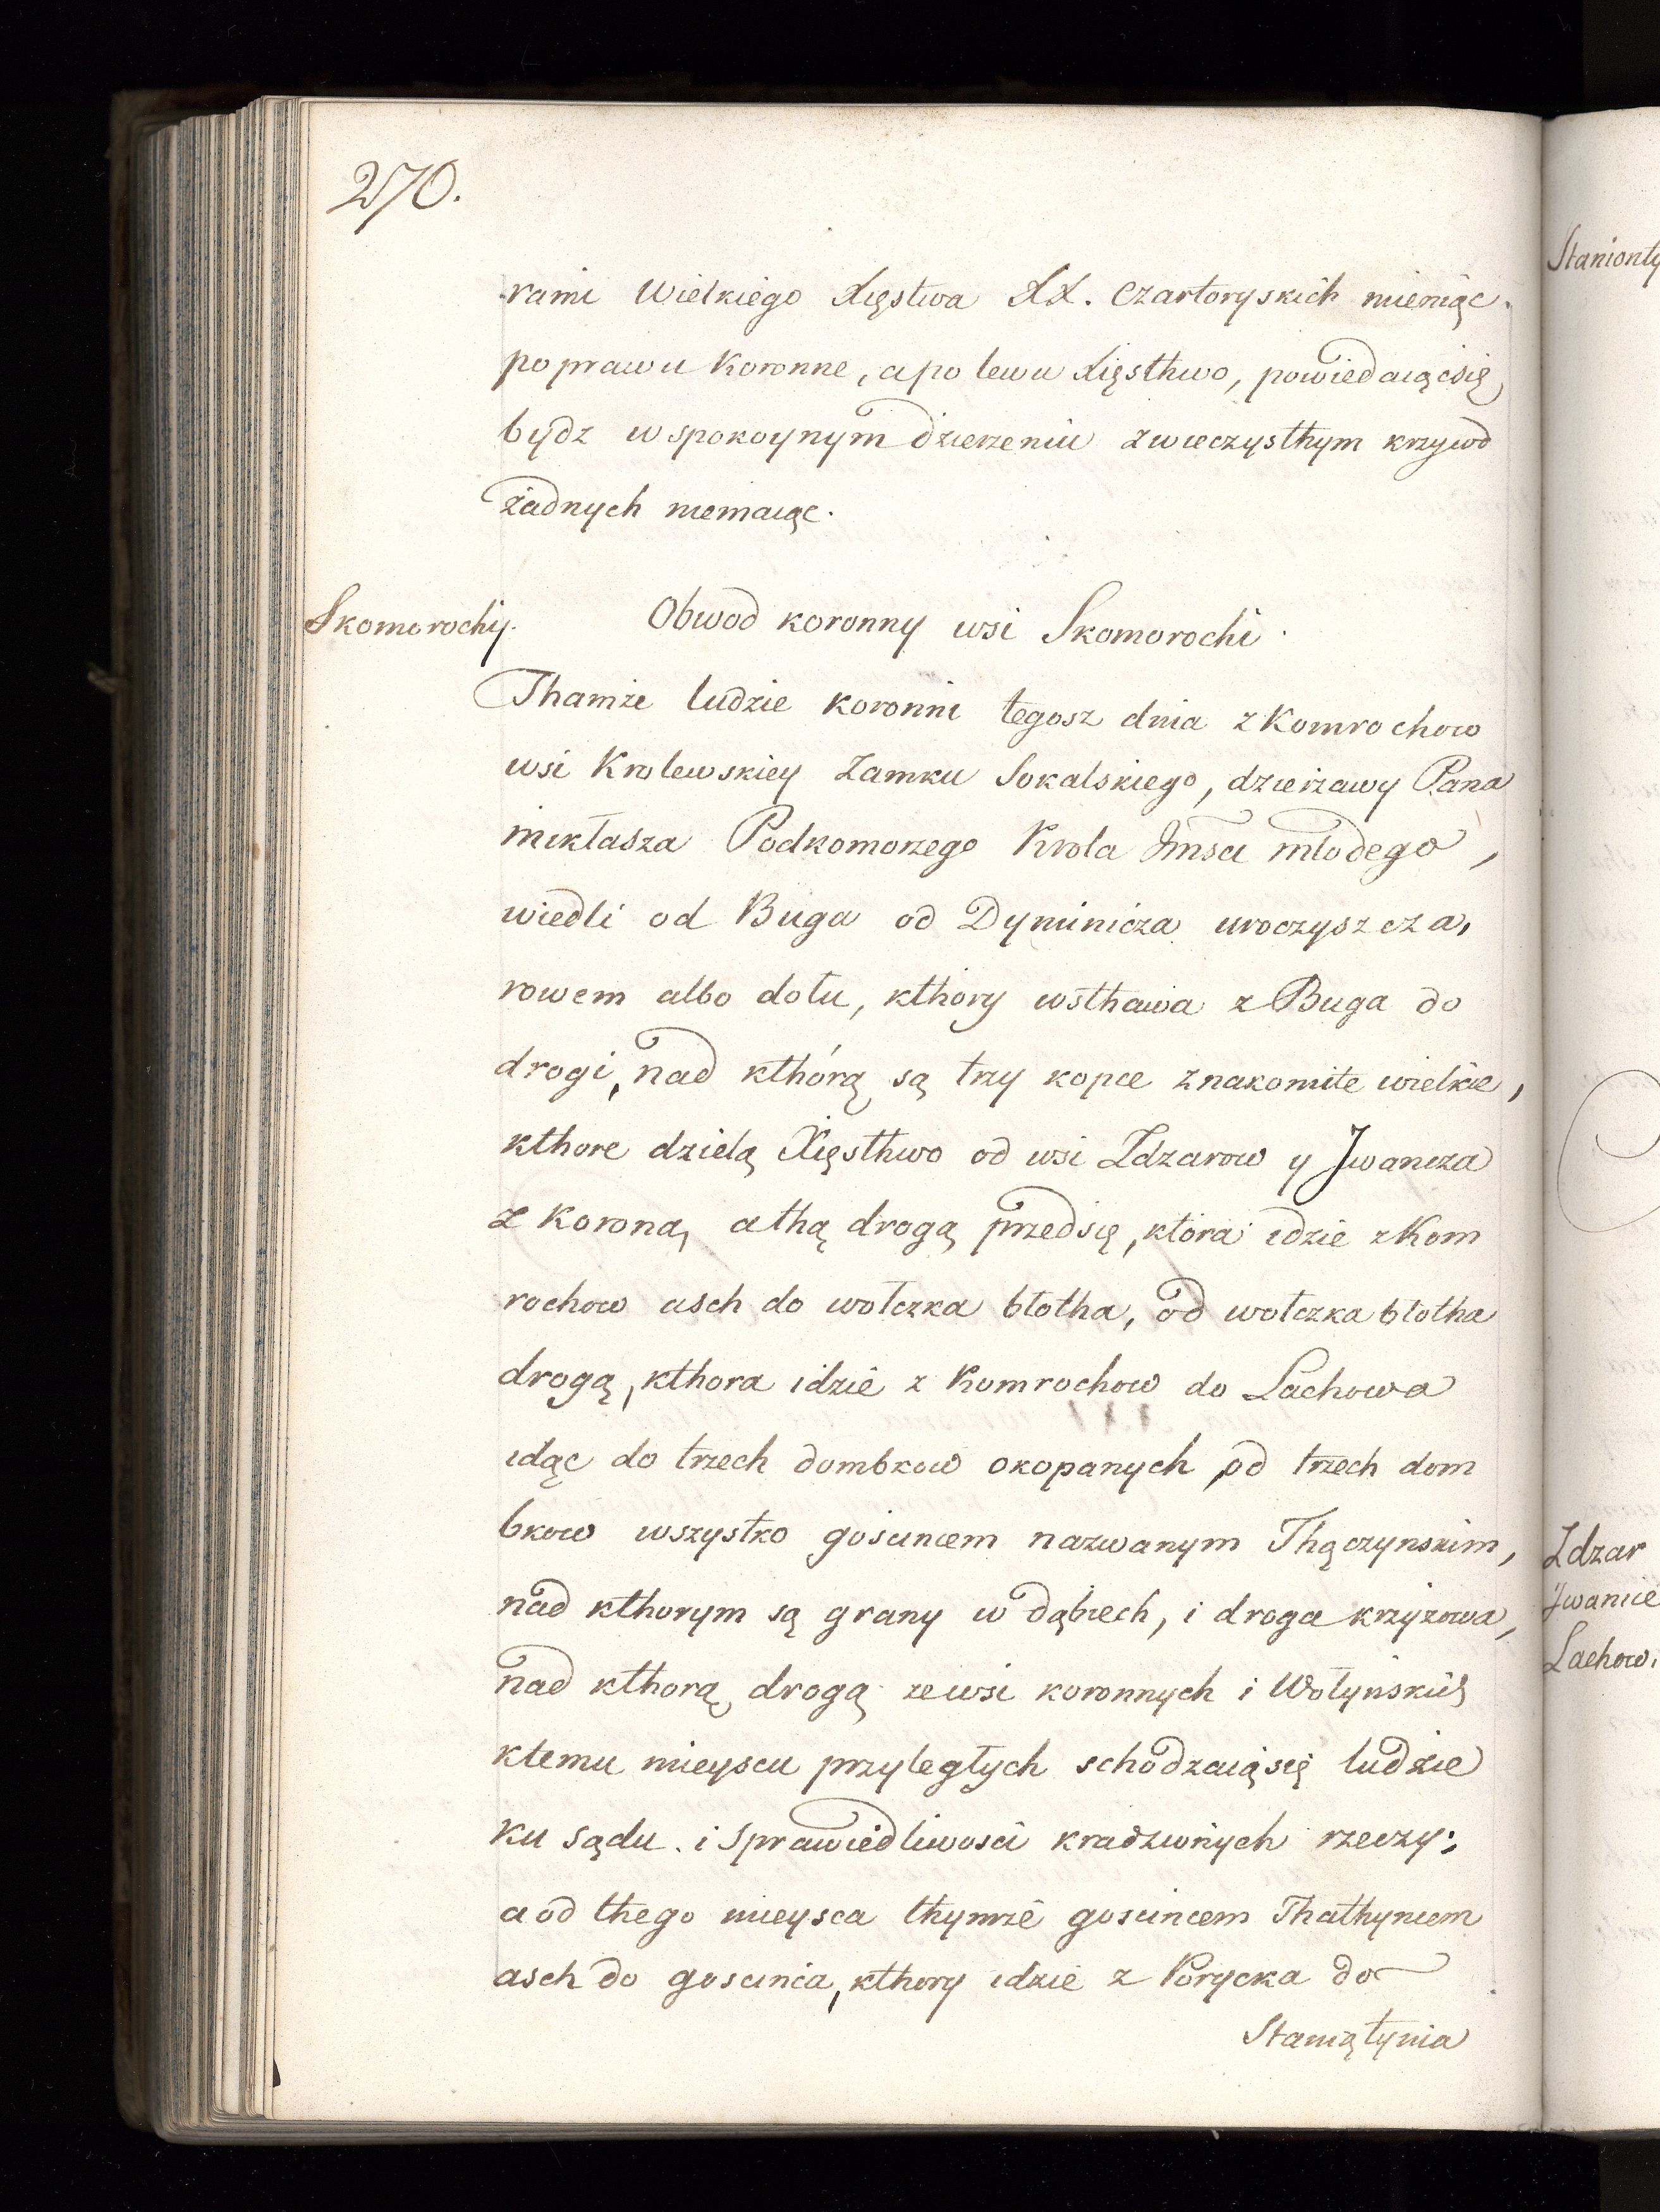 270.
rami Wielkiego Xięstwa XX. Czartoryskich mieniąc.
po prawu Koronne, a po lewu Xięsthwo, powiedaiąc się
bydz w spokoynym dzierzeniu zwieczysthym krzywd
żadnych niemaiąc.
Skomorochy.
Obwod koronny wsi Skomorochi.
Thamże ludzie koronni tegosz dnia zKomrochow
wsi Krolewskiey Zamku Sokalskiego, dzierżawy Pana
mikłasza Podkomorzego Krola Jmsci młodego,
wiedli od Buga od Dyminicza uroczyszcza,
rowem albo dołu, kthory wsthawa z Buga do
drogi, nad kthórą są trzy kopce znakomite wielkie,
kthore dzielą Xięsthwo od wsi Zdzarow y Jwancza
z Koroną, a thą drogą przedsię, która idzie zKom
rochow asch do wołczka błotha, od wołczka błotha
drogą, kthora idzie z Komrochow do Lachowa
idąc do trzech dombkow okopanych, od trzech dom
bkow wszystko goscincem nazwanym Thęczynskim,
nad kthorym są grany w dąbiech, i droga krzyżowa,
nad kthorą drogą ze wsi koronnych i Wołyńskich
ktemu mieyscu przyległych schodzaią się ludzie
ku sądu i sprawiedliwosci kradzionych rzeczy;
a od thego mieysca thymże goscincem Thathyncem
asch do goscinca, kthory idzie z Porycka do
Stamątynia
Stanionty
Zdzar
Jwanie
Lachow.